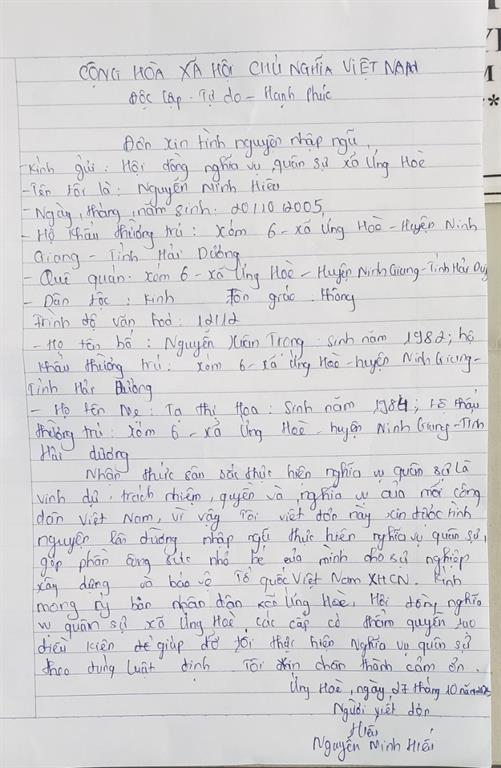 CỘNG HÒA XÃ HỘI CHỦ NGHĨA VIỆT NAM
Độc lập - Tự do - Hạnh phúc
Đơn xin tình nguyện nhập ngũ,
- Kính gửi: Hội đồng nghĩa vụ quân sự xã Ứng Hoè
- Tên tôi là: Nguyễn Minh Hiếu
- Ngày, tháng, năm sinh: 20/10/2005,
- Hộ khẩu thường trú: xóm 6 - xã Ứng Hoè - Huyện Ninh
Giang - Tỉnh Hải Dương
- Quê quán: xóm 6 - xã Ứng Hoè - Huyện Ninh Giang - Tỉnh Hải
- Dân tộc: Kinh Tôn giáo: Không
Trình độ văn hoá: 12/12
- Họ tên bố: Nguyễn Xuân Trọng sinh năm 1982; hộ
khẩu thường trú: xóm 6 - xã Ứng Hoè - huyện Ninh Giang -
Tỉnh Hải Dương
- Họ tên Mẹ: Tạ thị Hoa: Sinh năm 1984; hộ khẩu
thường trú: xóm 6 - xã Ứng Hoè - huyện Ninh Giang - Tỉnh
Hải dương
Nhận thức sâu sắc thực hiện nghĩa vụ quân sự là
vinh dự, trách nhiệm, quyền và nghĩa vụ của mỗi công
dân Việt Nam, vì vậy Tôi viết đơn này xin được tình
nguyện lên đường nhập ngũ thực hiện nghĩa vụ quân sự,
góp phần công sức nhỏ bé của mình cho sự nghiệp
xây dựng và bảo vệ Tổ quốc Việt Nam XHCN. Kính
mong ủy ban nhân dân xã Ứng Hoè, Hội đồng nghĩa
vụ quân sự xã Ứng Hoè các cấp có thẩm quyền tạo
điều kiện để giúp đỡ tôi thực hiện Nghĩa vụ quân sự
theo đúng luật định. Tôi xin chân thành cảm ơn.
Ứng Hoè, ngày 27 tháng 10 năm
Người viết đơn
Hiếu
Nguyễn Minh Hiếu